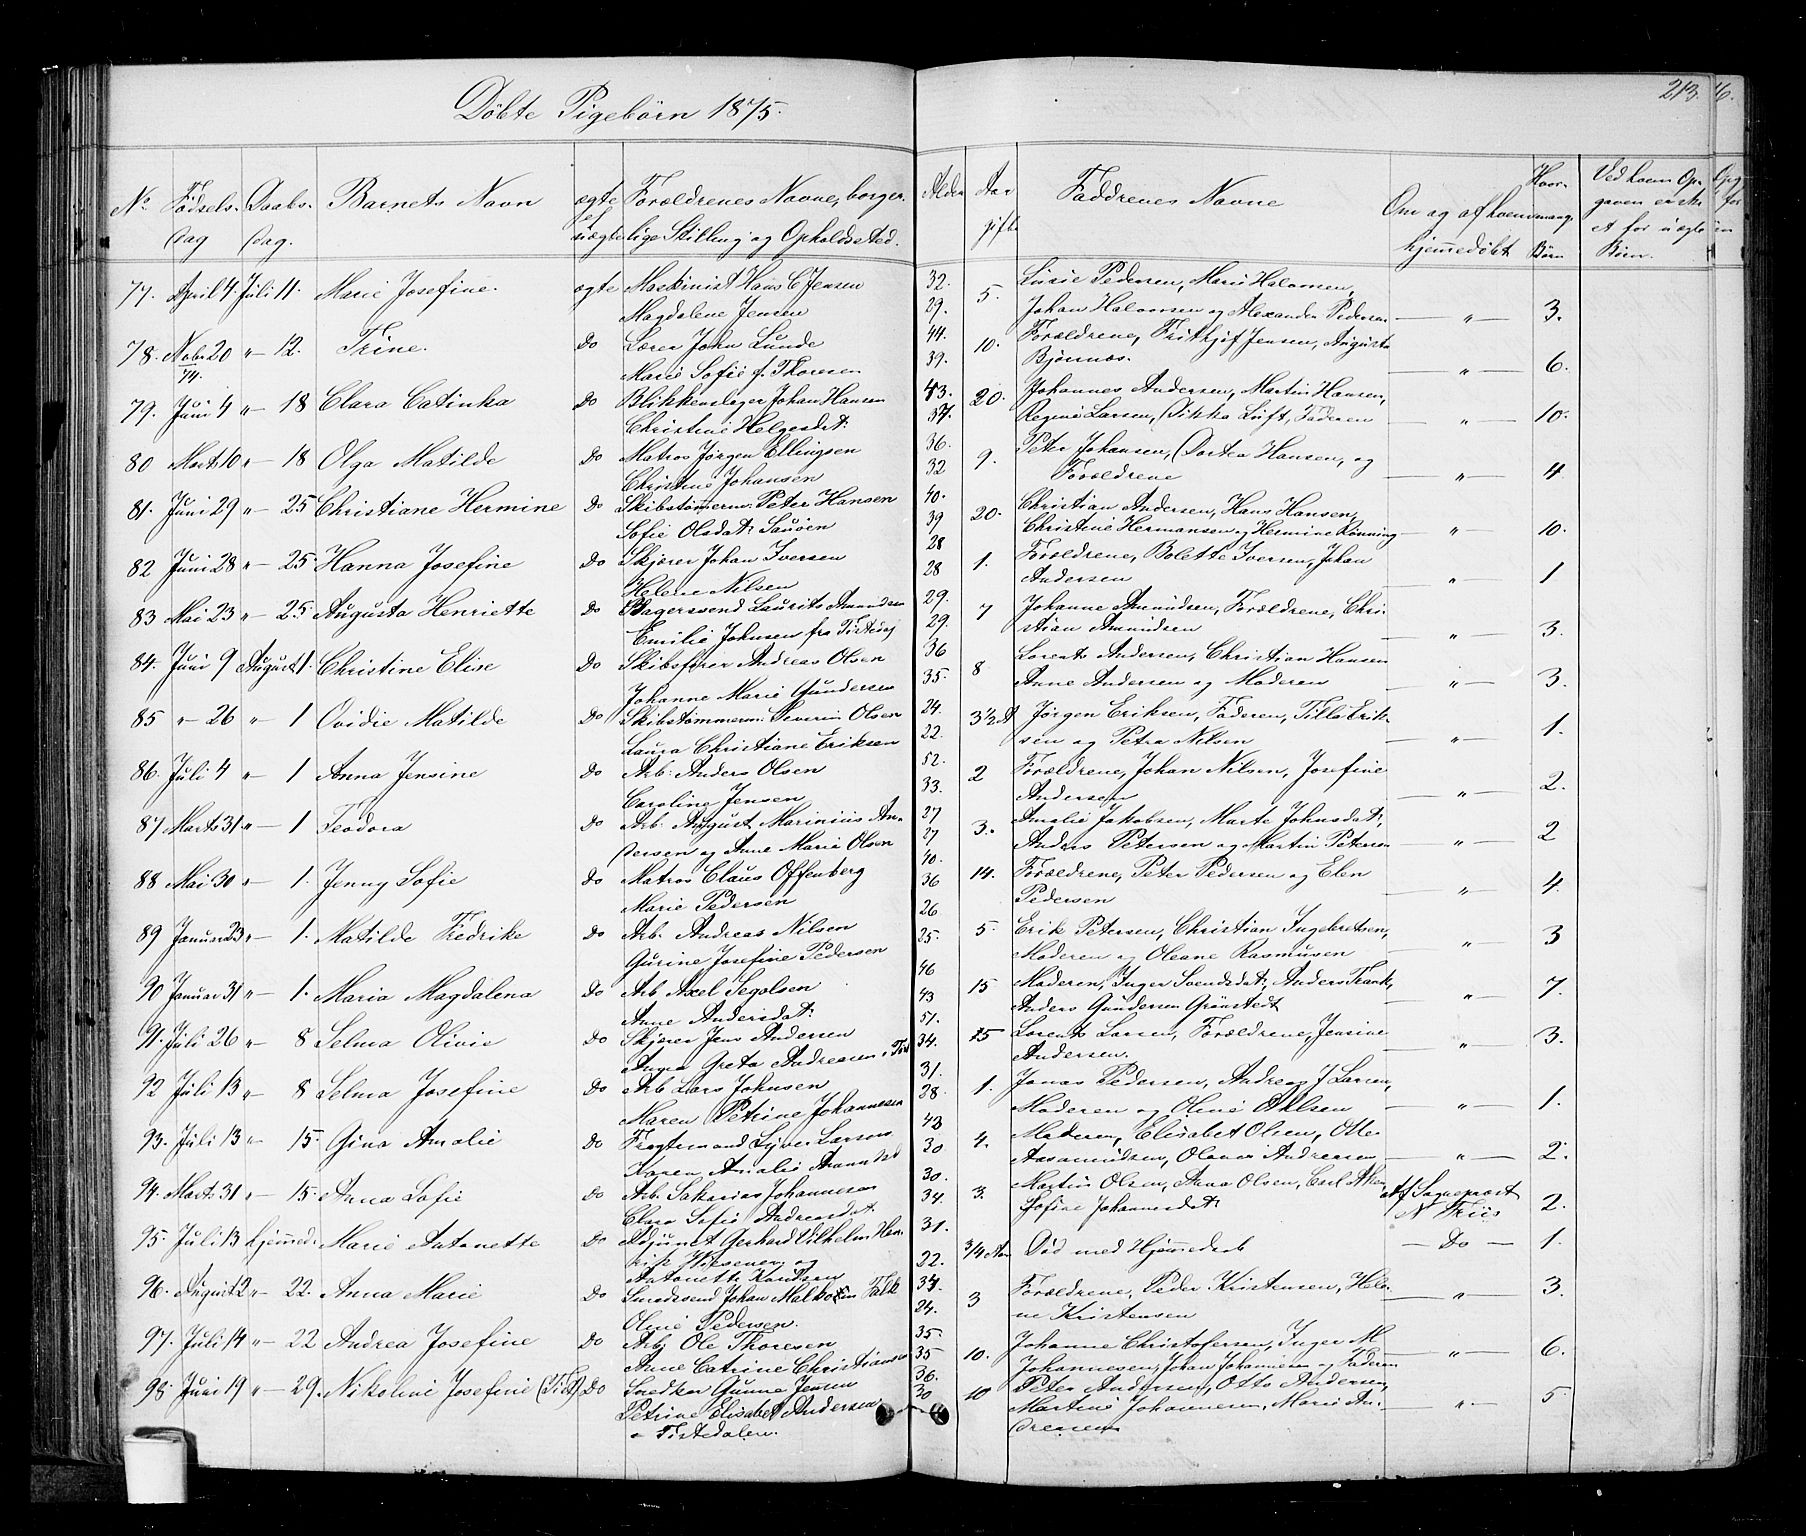 Döbte Pigebörn 1875.
213.
No Fødsels- dag Daabs- dag. Barnets Navn ægte el uægte Forældrenes Navne, borger- lige Stilling og Opholdssted. Alder Aar gifte Faddrenes Navne Om og af hvem hjemmedøbt Hvor- mange Börn Ved hvem Op- gaven er sket for uægte Börn.
77. April 4. Juli 11. Marie Josefine. ægte Maskinist Hans C Jensen 32. 5. Lovise Pedersen, Marie Halvorsen,
Magdalene Jensen 29. Johan Halvorsen og Alexander Pedersen — " — 3.
78. Nobr 20 74. " — 12. Trine. Do Lærer John Lunde 44. 10. Forældrene, Frithjof Jensen, Augusta
Marie Sofie f. Thoresen 39. Bjørnæs. — " — 6.
79. Juni 4 " — 18 Clara Catinka Do Blikkenslager Johan Hansen 43. 20. Johannes Andersen, Martin Hansen,
Christine Helgesdat: 37. Regine Larsen, Rikka Luft, Faderen — " — 10.
80 Marts 10 " — 18 Olga Matilde Do Matros Jørgen Ellingsen 36. 9. Peter Johansen, Dortea Hansen, og
Christine Johansen 32 Forældrene — " — 4
81. Juni 29 " — 25 Christiane Hermine Do Skibstømmerm: Peter Hansen 40. 20. Christian Andersen, Hans Hansen,
Sofie Olsdat: Sauøen 39 Christine Hermansen og Hermine Rønning — " — 10.
82 Juni 28 " — 25 Hanna Josefine Do Skjærer Johan Iversen 28 1. Forældrene, Bolette Iversen, Johan
Helene Nilsen 28 Andersen — " — 1
83 Mai 23 " — 25 Augusta Henriette Do Bagersvend Laurits Amundsen 29. 7 Johanne Amundsen, Forældrene, Chri-
Emilie Johnsen fra Tistedal 29. stian Amundsen — " — 3.
84. Juni 9 August 1. Christine Elise Do Skibsfører Andreas Olsen 36 8 Lorents Andersen, Christian Hansen
Johanne Marie Gundersen 35. Anne Andersen og Moderen — " — 3.
85 " — 26 " 1 Ovidie Matilde Do Skibstømmerm: Severin Olsen 24. 3 1/2 Jørgen Eriksen, Faderen, Tilla Erik-
Laura Christiane Eriksen 22. sen og Petra Nilsen — " — 1.
86. Juli 4 " — 1 Anna Jensine Do Arb: Anders Olsen 52. 2 Forældrene, Johan Nilsen, Josefine
Caroline Jensen 33. Andersen — " — 2.
87 Marts 31 " — 1 Teodora Do Arb: August Marinius An- 27 3. Amalie Jakobsen, Marte Johnsdat:,
dersen og Anne Marie Olsen 27 Anders Petersen og Martin Petersen — " — 2
88 Mai 30 " — 1. Jenny Sofie Do Matros Claus Offenberg 40. 14. Forældrene, Peter Pedersen og Elen
Marie Pedersen 36 Pedersen — " — 4.
89 Januar 23 " — 1. Matilde Fredrike Do Arb: Andreas Nilsen 26 5. Erik Petersen, Christian Ingebretsen,
Gurine Josefine Pedersen 25. Moderen og Oleane Rasmusen — " — 3
90 Januar 31 " — 1. Maria Magdalena Do Arb Axel Segolsen 46 15 Moderen, Inger Svendsdat:, Anders Frank,
Anne Andersdat: 43 Anders Gundersen Grønstedt — " — 7.
91. Juli 26 " — 8 Selma Olivie Do Skjærer Jens Andersen 51. 15 Lorents Larsen, Forældrene, Jensine
Greta Andreasen 34. Andersen. — " — 3.
92 Juli 13 " — 8 Selma Josefine Do Arb Lars Johnsen 31. 1. Jonas Pedersen, Andreas J Larsen,
Maren Petrine Johannesen 28 Moderen og Oline — " — 1.
93. Juli 13 " — 15. Gina Amalie Do Fragtemand Syver Larsen 43 4. Moderen, Elisabet Olsen, Otte
Karen Amalie Amundsd 30 Aasamundsen, Andreasen — " — 2.
94. Marts 31 " — 15. Anna Sofie Do Arb. Sakarias Johannesen 30. 3. Martin Olsen, Anna Olsen, Carl
Clara Sofie Andreasdat: 34. Sofine Johannesdat: Af Sogneprest N Friis 2.
95. Juli 13 hjemmed. Marie Antonette Do Adjunct Gerhard Vilhelm Hen- 31. 3/4 Aar Død med Hjemmedaab — Do — 1.
rik og Antonette Knudsen 22.
96. August 2 " — 22. Anna Marie Do Smedesvend Johan Falk 34. 3 Forældrene, Peder Kristensen, Hele-
Oline Pedersen. 24. ne Kristensen — " — 3.
97. Juli 14 " — 22 Andrea Josefine Do Arb Ole Thoresen 35. 10. Johanne Christofersen, Inger M
Anne Catrine Christiansen 35 Johannesen, Johan Johannesen og Faderen — " — 6.
98. Juni 19 " — 29. Nikoline Josefine (Tist) Do Snedker Gunne Jensen 36. 10 Peter Andersen, Otto Andersen,
Petrine Elisabet Andersen 30 Martine Johannesen, Marie An-
Tistedalen. dreasen — " — 5.